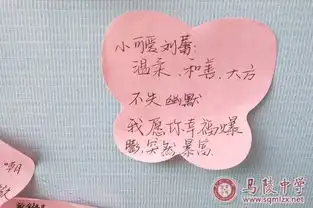 小可爱刘蕾:
温柔、和善、大方
不失幽默
我愿你幸福爆
棚,突然暴富
潮
马陵中学
www.sqmlzx.net